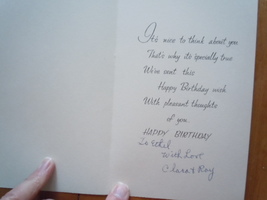 It's nice to think about you
That's why it's specially true
We've sent this
Happy Birthday wish
With pleasant thoughts
of you.
HAPPY BIRTHDAY
To Ethel
With Love
Clara & Ray